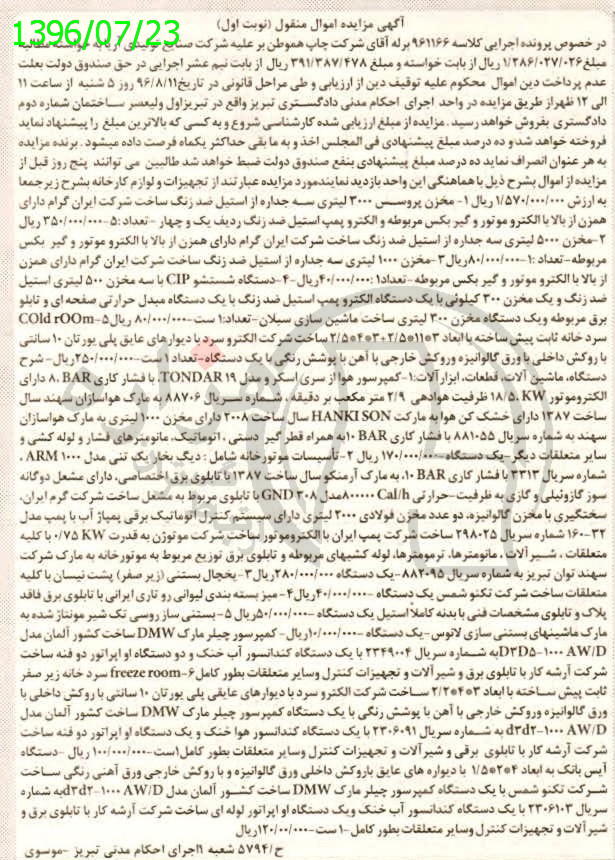 1396/07/23
آگهی مزایده اموال منقول (نوبت اول)
در خصوص پرونده اجرایی کلاسه ۹۶۱۱۶۶ برله آقای شرکت چاپ هموطن بر علیه شرکت صنایع تولیدی آریا به خواسته مطالبه
مبلغ ۷/۲۸۶/۰۲۷/۰۲۶ ریال از بابت خواسته و مبلغ ۳۹۱/۳۸۷/۴۷۸ ریال از بابت نیم عشر اجرایی در حق صندوق دولت بعلت
عدم پرداخت دین اموال محکوم علیه توقیف دین از ارزیابی و طی مراحل قانونی در تاریخ ۹۶/۸/۱۱ روز ۵ شنبه از ساعت ۱۱
الی ۱۲ ظهر از طریق مزایده در واحد اجرای احکام مدنی دادگستری تبریز واقع در تبریز اول ولیعسر ساختمان شماره دوم
دادگستری بفروش خواهد رسید. مزایده از مبلغ ارزیابی شده کارشناسی شروع و به کسی که بالاترین مبلغ را پیشنهاد نماید
فروخته خواهد شد و ده درصد مبلغ پیشنهادی فی المجلس اخذ و به ما بقی حداکثر یکماه فرصت داده میشود. برنده مزایده
به هر عنوان انصراف نماید ده درصد مبلغ پیشنهادی بنفع صندوق دولت ضبط خواهد شد طالبین می توانند پنج روز قبل از
مزایده از اموال بشرح ذیل با هماهنگی این واحد بازدید نمایند مورد مزایده عبارتند از تجهیزات و لوازم کارخانه بشرح زیر جمعا
به ارزش ۱/۵۷۰/۰۰۰/۰۰۰ ریال ۱- مخزن پروسس ۳۰۰۰ لیتری سه جداره از استیل ضد زنگ ساخت شرکت ایران گرام دارای
همزن از بالا با الکترو موتور و گیر بکس مربوطه و الکترو پمپ استیل ضد زنگ ردیف یک و چهار -تعداد: ۵-۳۵۰/۰۰۰/۰۰۰ ریال
۲-مخزن ۵۰۰۰ لیتری سه جداره از استیل ضد زنگ ساخت شرکت ایران گرام دارای همزن از بالا با الکترو موتور و گیر بکس
مربوطه-تعداد :۱-۸۰/۰۰۰/۰۰۰ریال ۳-مخزن ۱۰۰۰ لیتری سه جداره از استیل ضد زنگ ساخت شرکت ایران گرام دارای همزن
از بالا با الکترو موتور و گیر بکس مربوطه-تعداد۱ :۴۰/۰۰۰/۰۰۰ریال-۴-دستگاه شستشو CIP با سه مخزن ۵۰۰ لیتری استیل
ضد زنگ و یک مخزن ۳۰۰ کیلوئی با یک دستگاه الکترو پمپ استیل ضد زنگ با یک دستگاه مبدل حرارتی صفحه ای و تابلو
برق مربوطه ویک دستگاه مخزن ۳۰۰ لیتری ساخت ماشین سازی سبلان-تعداد:۱ ست-۸۰/۰۰۰/۰۰۰ ریال ۵-COld rOOm
سرد خانه ثابت پیش ساخته با ابعاد ۳*۱۱*۲/۵+۳*۴*۲/۵ ساخت شرکت الکترو سرد با دیوارهای عایق پلی یورتان ۱۰ سانتی
با روکش داخلی با ورق گالوانیزه وروکش خارجی با آهن با پوشش رنگی با یک دستگاه-تعداد ۱ ست-۲۵۰/۰۰۰/۰۰۰ریال- شرح
دستگاه، ماشین آلات، قطعات، ابزار آلات:۱-کمپرسور هوا از سری اسکر و مدل TONDAR ۱۹، با فشار کاری ۸، BAR دارای
الکتروموتور ۱۸/۵، KW ظرفیت هوادهی ۲/۹ متر مکعب بر دقیقه ، شماره سریال ۸۸۷۰۶ به مارک هواسازان سهند سال
ساخت ۱۳۸۷ دارای خشک کن هوا به مارکت HANKI SON سال ساخت ۲۰۰۸ دارای مخزن ۱۰۰۰ لیتری به مارک هواسازان
سهند به شماره سریال ۸۸۱۰۵۵ با فشار کاری ۱۰ BAR به همراه قطر گیر دستی ، اتوماتیک، مانومترهای فشار و لوله کشی و
سایر متعلقات دیگر-یک دستگاه-۱۷۰/۰۰۰/۰۰۰ ریال ۲-تأسیسات موتورخانه شامل: دیگ بخار یک تنی مدل ARM ۱۰۰۰ ،
شماره سریال ۳۳۱۳ با فشار کاری ۱۰ BAR، به مارک آرمنکو سال ساخت ۱۳۸۷ با تابلوی برق اختصاصی، دارای مشعل دوگانه
سوز گازوئیلی و گازی به ظرفیت-حرارتی ۸۰۰۰۰۰ Cal/h مدل GND ۳۰۸ با تابلوی مربوط به مشعل ساخت شرکت گرم ایران،
سختگیری با مخزن گالوانیزه، دو عدد مخزن فولادی ۲۰۰۰ لیتری دارای سیستم کنترل اتوماتیک برقی پمپاژ آب با پمپ مدل
۳۲-۱۶۰ شماره سریال ۲۹۸۰۲۵ ساخت شرکت پمپ ایران با الکتروموتور ساخت شرکت موتوژن به قدرت ۰/۷۵ KW با کلیه
متعلقات ، شیر آلات ، مانومترها، ترمومترها، لوله کشیهای مربوطه و تابلوی برق توزیع مربوط به موتورخانه به مارک شرکت
سهند توان تبریز به شماره سریال ۸۸۲۰۹۵-یک دستگاه ۲۸۰/۰۰۰/۰۰۰ریال ۳-یخچال بستنی (زیر صفر) پشت نیسان با کلیه
متعلقات ساخت شرکت تکنو شمس یک دستگاه -۴۰/۰۰۰/۰۰۰ریال ۴- میز بسته بندی لیوانی رو تاری ایرانی با تابلوی برق فاقد
پلاک و تابلوی مشخصات فنی با بدنه کاملاً استیل یک دستگاه -۵۰/۰۰۰/۰۰۰ریال ۵- بستنی ساز روسی تک شیر مونتاژ شده به
مارک ماشینهای بستنی سازی لاتوس-یک دستگاه -۱۰/۰۰۰/۰۰۰ریال- کمپرسور چیلر مارک DMW ساخت کشور آلمان مدل
D۳D۵-۱۰۰۰ AW/D به شماره سریال ۲۳۴۹۰۰۴ با یک دستگاه کندانسور آب خنک و دو دستگاه او اپراتور دو فنه ساخت
شرکت آرشه کار با تابلوی برق و شیر آلات و تجهیزات کنترل وسایر متعلقات بطور کامل ۶-freeze room سرد خانه زیر صفر
ثابت پیش ساخته با ابعاد ۳*۴*۲/۲ ساخت شرکت الکترو سرد با دیوارهای عایق پلی یورتان ۱۰ سانتی با روکش داخلی با
ورق گالوانیزه وروکش خارجی با آهن با پوشش رنگی با یک دستگاه کمپرسور چیلر مارک DMW ساخت کشور آلمان مدل
d۳d۲-۱۰۰۰ AW/D به شماره سریال ۲۳۰۶۰۹۱ با یک دستگاه کندانسور هوا خنک و یک دستگاه او اپراتور دو فنه ساخت
شرکت آرشه کار با تابلوی برقی و شیر آلات و تجهیزات کنترل وسایر متعلقات بطور کامل ۱ست-۱۰۰/۰۰۰/۰۰۰ ریال -دستگاه
آیس بانک به ابعاد ۴*۲*۱/۵ با دیواره های عایق باروکش داخلی ورق گالوانیزه و با روکش خارجی ورق آهنی رنگی ساخت
شرکت تکنو شمس با یک دستگاه کمپرسور چیلر مارک DMW ساخت کشور آلمان مدل d۳d۲-۱۰۰۰ AW/D به شماره
سریال ۲۳۰۶۱۰۳ با یک دستگاه کندانسور آب خنک ویک دستگاه او اپراتور لوله ای ساخت شرکت آرشه کار با تابلوی برق و
شیر آلات و تجهیزات کنترل وسایر متعلقات بطور کامل -۱ ست-۱۲۰/۰۰۰/۰۰۰ریال
ح/۵۷۹۴ شعبه ۱۱جرای احکام مدنی تبریز -موسوی